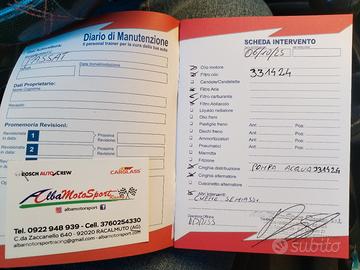 Diario di Manutenzione
Il personal trainer per la cura della tua auto
PASSAT
Data Immatricolazione
Dati Proprietario:
Promemoria Revisioni:
Revisionata in data
1
Prossima Revisione
Revisionata in data
2
Prossima Revisione
BOSCH AUTO CREW
CARGLASS
AlbaMotoSport
albamotorsport
Tel. 0922 948 939 - Cell. 3760254330
C.da Zaccanello 640 - 92020 RACALMUTO (AG)
albamotorsportracing@gmail.com
SCHEDA INTERVENTO
06/10/25
Olio motore
Filtro olio
331424
Candele/Candelette
Filtro Aria
Filtro carburante
Filtro Abitacolo
Liquido radiatore
Olio freni
Pastiglie freno Ant Pos
Dischi freni Ant Pos
Ammortizzatori Ant Pos
Pneumatici Ant Pos
Marmitta
Frizione
Cinghia distribuzione
POMPA ACQUA 331424
Cinghia alternatore
Cuscinetto alternatore
Altri interventi
CUFFIE SEMIASSI
subito